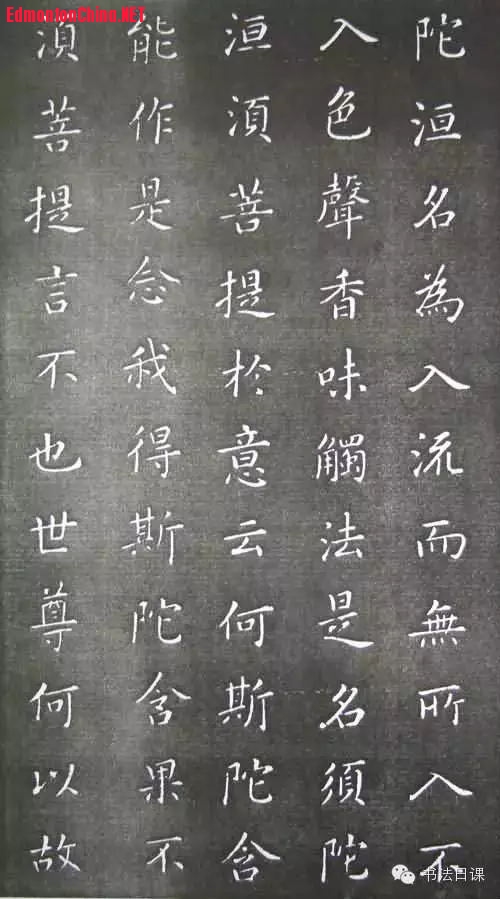 EdmontonChina.NET
陀洹名為入流而無所入不
入色聲香味觸法是名須陀
洹須菩提於意云何斯陀含
能作是念我得斯陀含果不
須菩提言不也世尊何以故
书法日课